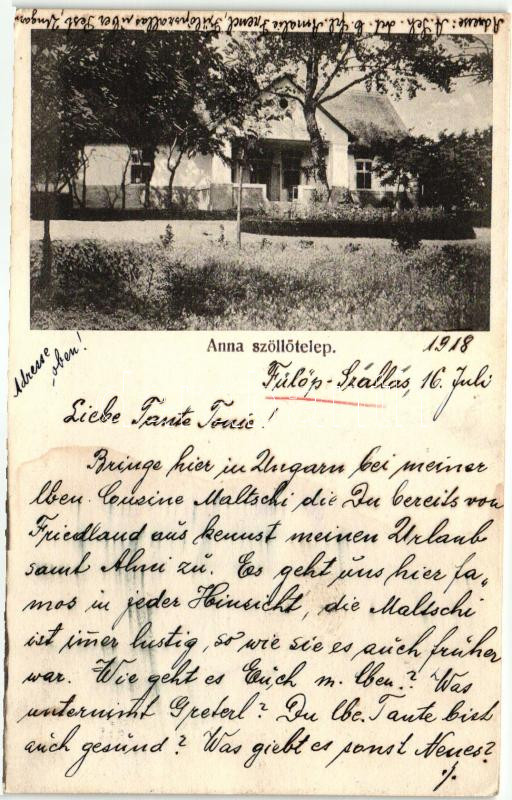 Adresse: A. Sch. bei Frl. Amalie Frencl, Fülöpszállás über Pest, Ungarn
Anna szöllőtelep.
1918
Adresse oben!
Fülöp-Szállás, 16. Juli
Liebe Tante Tonie!
Bringe hier in Ungarn bei meiner
lben. Cousine Maltschi die Du bereits von
Friedland aus kennst meinen Urlaub
samt Almi zu. Es geht uns hier fa„
mos in jeder Hinsicht, die Maltschi
ist im̄er lustig, so wie sie es auch früher
war. Wie geht es Euch m. lben.? Was
unternim̄t Greterl? Du lbe. Tante bist
auch gesund? Was giebt es sonst Neues?
./.